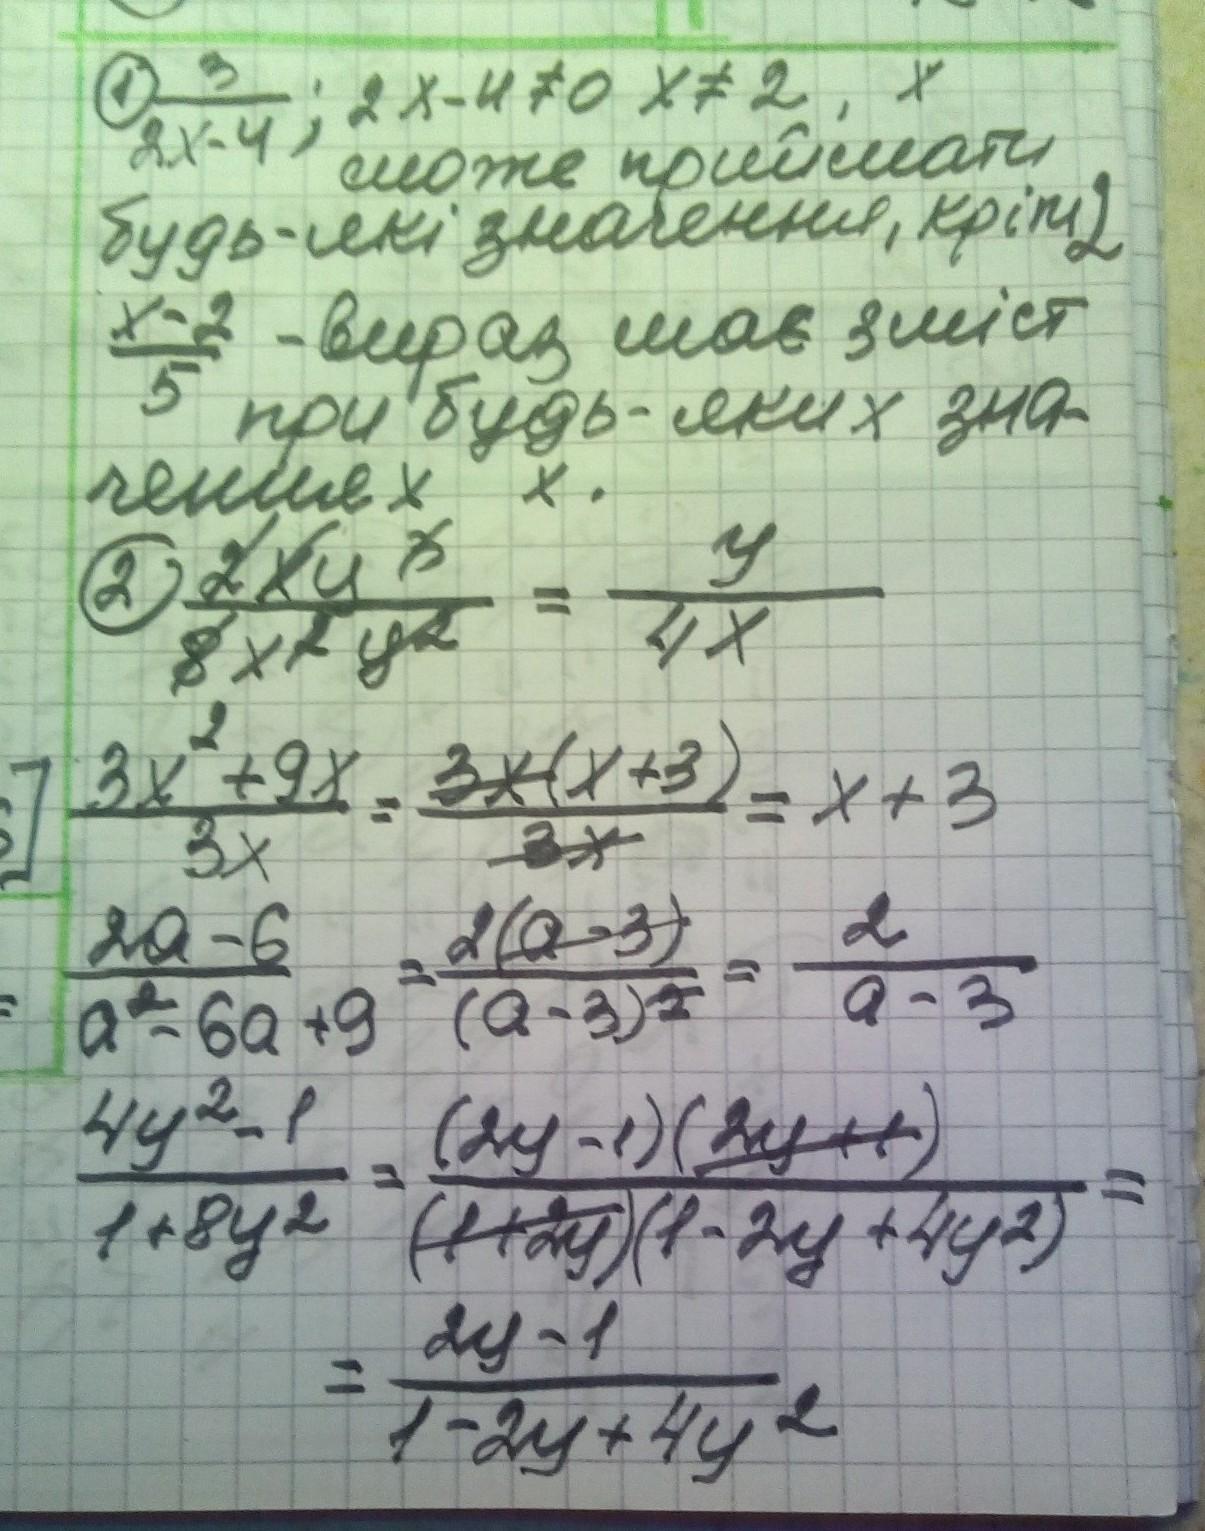 ① 3/(2x-4); 2x-4≠0 x≠2, x
може приймати
будь-які значення, крім 2
(x-2)/5 - вираз має зміст
при будь-яких зна-
ченнях x.
② 2xy³/8x²y² = y/4x
(3x²+9x)/3x = 3x(x+3)/3x = x+3
(2a-6)/(a²-6a+9) = 2(a-3)/(a-3)² = 2/(a-3)
(4y²-1)/(1+8y²) = (2y-1)(2y+1)/(1+2y)(1-2y+4y²) =
= (2y-1)/(1-2y+4y²)